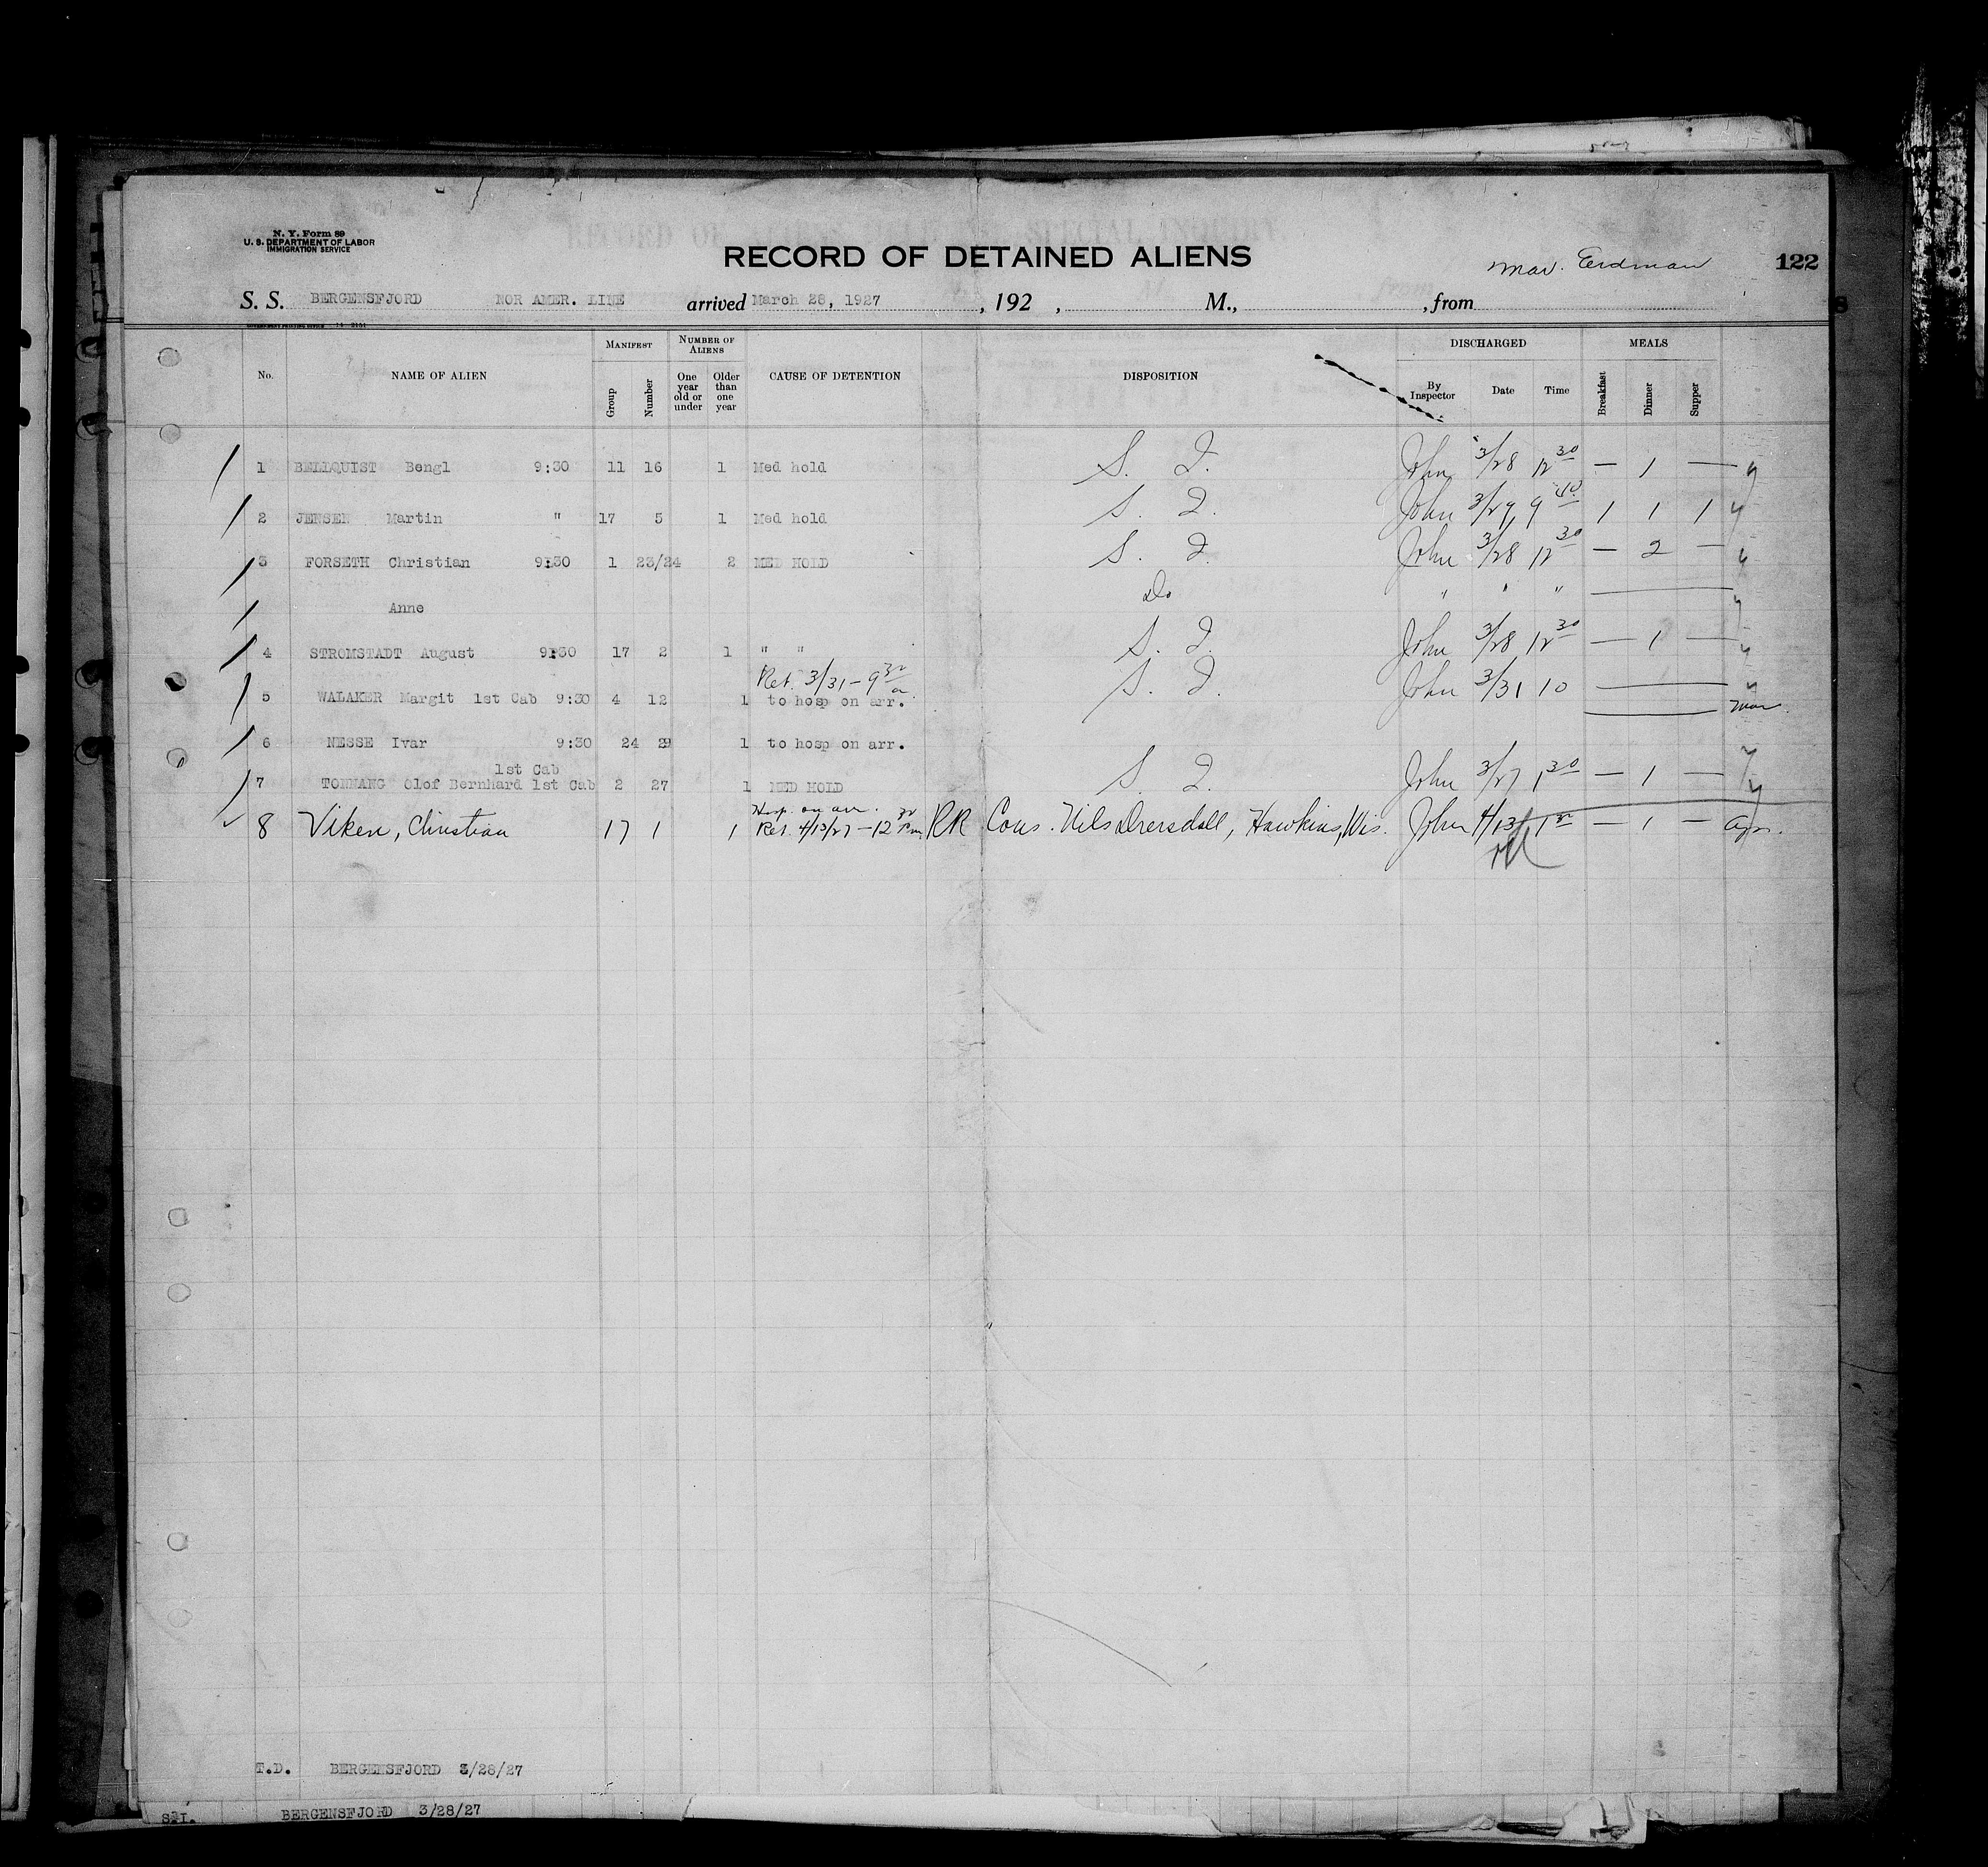 N. Y. Form 89
U. S. DEPARTMENT OF LABOR
IMMIGRATION SERVICE
RECORD OF DETAINED ALIENS
Mar. Erdman 122
S. S. BERGENSFJORD NOR AMER. LINE arrived March 28, 1927, 192 , M., , from
No. NAME OF ALIEN MANIFEST Group Number NUMBER OF ALIENS One year old or under Older than one year CAUSE OF DETENTION DISPOSITION DISCHARGED By Inspector Date Time MEALS Breakfast Dinner Supper
1 BELLQUIST Bengl 9:30 11 16 1 Med hold S. I. John 3/28 12 30 — 1 —
2 JENSEN Martin " 17 5 1 Med hold S. I. John 3/29 9 40 1 1 1
3 FORSETH Christian 9:30 1 23/24 2 MED HOLD S. I. John 3/28 12 30 — 2 —
Anne Do " " "
4 STROMSTADT August 9:30 17 2 1 " " S. I. John 3/28 12 30 — 1 —
Ret. 3/31 - 9 30 a.
5 WALAKER Margit 1st Cab 9:30 4 12 1 to hosp on arr. S. I. John 3/31 10
Mar.
6 NESSE Ivar 9:30 24 29 1 to hosp on arr.
1st Cab
7 Olof Bernhard 1st Cab 2 27 1 MED HOLD S. I. John 3/27 1 30 — 1 —
Hosp. on arr.
8 Viken, Christian 17 1 1 Ret. 4/13/27 - 12 30 Pm. RR Cons. Nils Hawkins, Wis. John 4/13 1 — 1 — Apr.
T.D. BERGENSFJORD 3/28/27
S.I. BERGENSFJORD 3/28/27